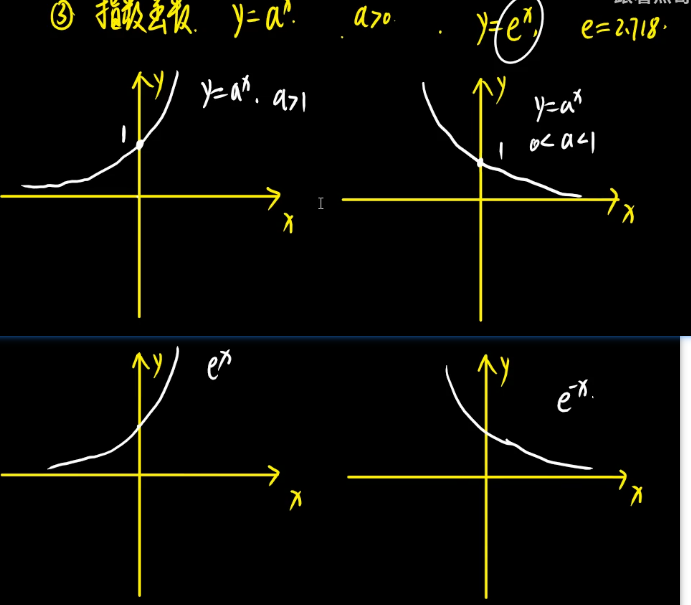 ③ 指数函数. y=aˣ. a>0. y=eˣ. e=2.718.
y y=aˣ. a>1
1
x
y y=aˣ
0<a<1
1
x
y eˣ
x
y e⁻ˣ.
x